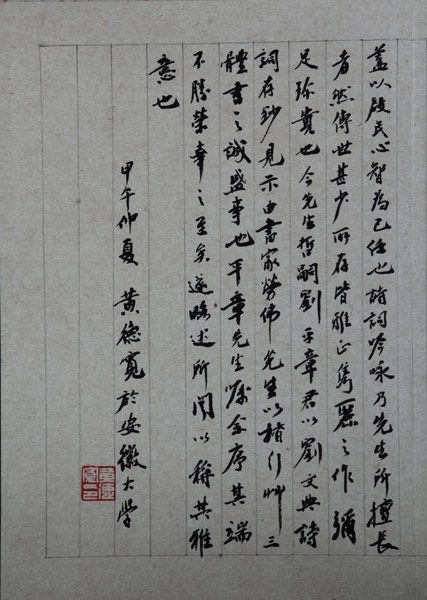 蓋以啟民心智為己任也詩詞吟咏乃先生所擅長
者然傳世甚少所存皆雅正雋麗之作彌
足珍貴也今先生哲嗣劉平章君以劉文典詩
詞存鈔見示由書家勞偉先生以楷行艸三
體書之誠盛事也平章先生囑余序其端
不勝榮幸之至矣遂略述所聞以稱其雅
意也
甲午仲夏 黃德寬於安徽大学